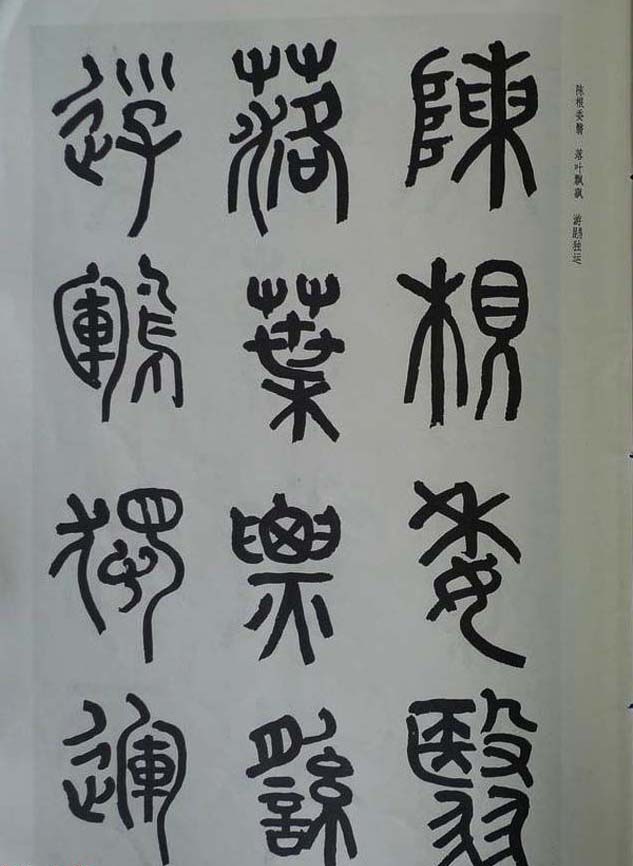 陈根委翳 落叶飘飖 游鹍独运
陳根委翳
落葉票繇
遊鶤獨運